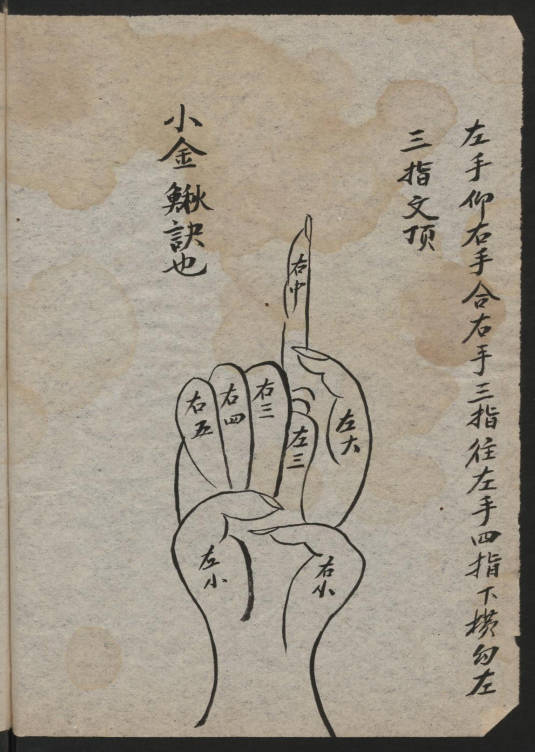 左手仰右手合右手三指往左手四指下横勾左
三指文顶
小金鳅訣也
右中
右三
右四
右五
左三
左大
左小
右小